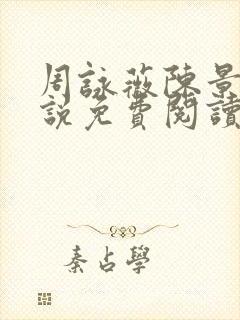 周詠薇陳景
說免費閱讀
秦占學